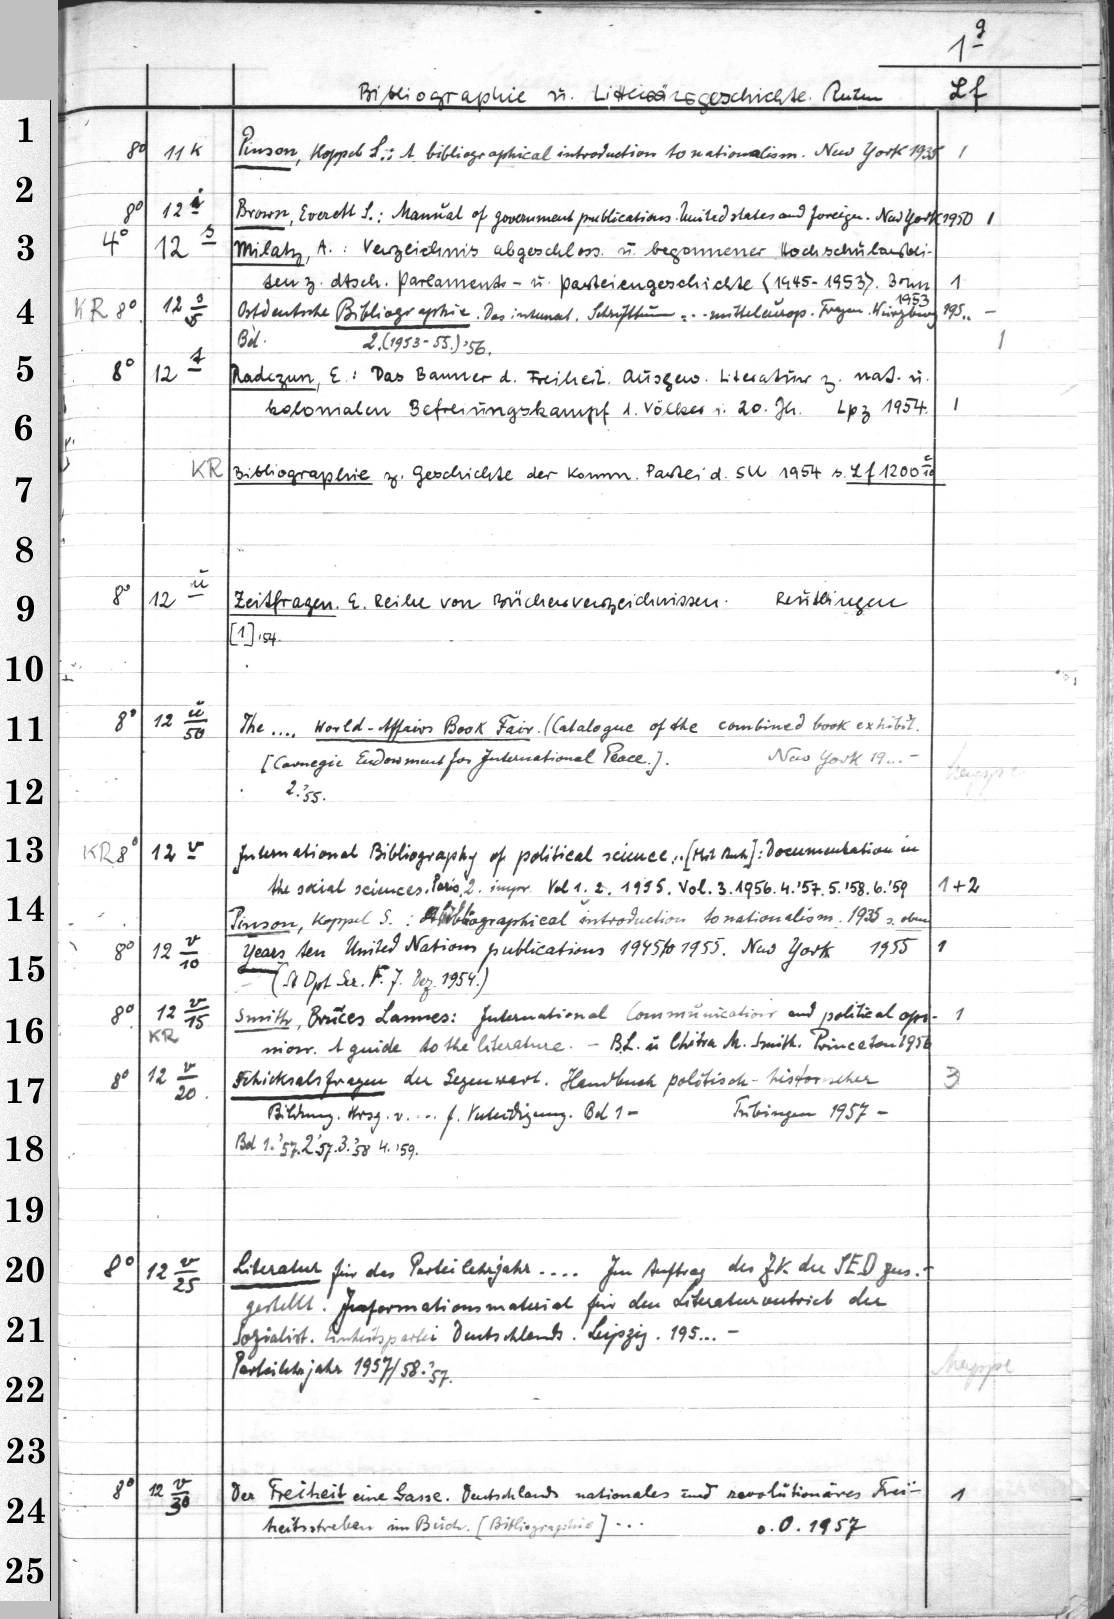 1 g
Bibliographie u. Literärgeschichte. Lf
1
8° 11 k Pinson, Koppel S.: A bibliographical introduction to nationalism. New York 1935 1
2
8° 12 i Brown, Everett S.: Manual of government publications. United states and foreign. New York 1950 1
3
4° 12 s Milatz, A.: Verzeichnis abgeschloss. u. begonnener Hochschularbei-
ten z. dtsch. Parlaments- u. parteiengeschichte (1945-1953). Bonn 1
1953
4
KR 8° 12 s/5 Ostdeutsche Bibliographie. Das internat. Schrifttum ... mitteleurop. Fragen. Würzburg 195.. -
Bd. 2.(1953-55.)'56. 1
5
8° 12 t Radczun, E.: Das Banner d. Freiheit. Ausgew. Literatur z. nat. u.
kolonialen Befreiungskampf d. Völker i. 20. Jh. Lpz 1954. 1
6
KR Bibliographie z. Geschichte der Komm. Partei d. SU 1954 s. Lf 1200 u/10
7
8
9
8° 12 u Zeitfragen. E. Reihe von Bücherverzeichnissen. Reutlingen
[1] '54.
10
11
8° 12 u/50 The .... World-Affairs Book Fair. (Catalogue of the combined book exhibit.
[Carnegie Endowment for International Peace.]. New York 19...-
12
2.'55.
13
KR 8° 12 v International Bibliography of political science ... : Documentation in
the social sciences. Paris, 2. impr. Vol 1. 2. 1955. Vol. 3. 1956. 4.'57. 5.'58. 6.'59 1+2
14
Pinson, Koppel S.: A bibliographical introduction to nationalism. 1935 s. oben
15
8° 12 v/10 Years ten United Nations publications 1945 to 1955. New York 1955 1
(St Dpt Ser. F. 7. Dez. 1954.)
16
8° 12 v/15 Smith, Bruces Lannes: International Communication and political opi- 1
KR nion. A guide to the literature. - B.L. u Chitra M. Smith. Princeton 1956
17
8° 12 v/20. Schicksalsfragen der Gegenwart. Handbuch politisch-historischer 3
Bildung. Hrsg. v. ... f. Verteidigung. Bd 1 - Tübingen 1957 -
18
Bd 1.'57. 2'57. 3.'58 4.'59.
19
20
8° 12 v/25 Literatur für das Parteilehrjahr .... Im Auftrag des ZK der SED zus.-
gestellt. Informationsmaterial für den Literaturvertrieb der
21
Sozialist. Einheitspartei Deutschlands. Leipzig. 195... -
Parteilehrjahr 1957/58.'57.
22
23
24
8° 12 v/30 Der Freiheit eine Gasse. Deutschlands nationales und revolutionäres Frei- 1
heitsstreben im Buch. [Bibliographie] ... o.O. 1957
25